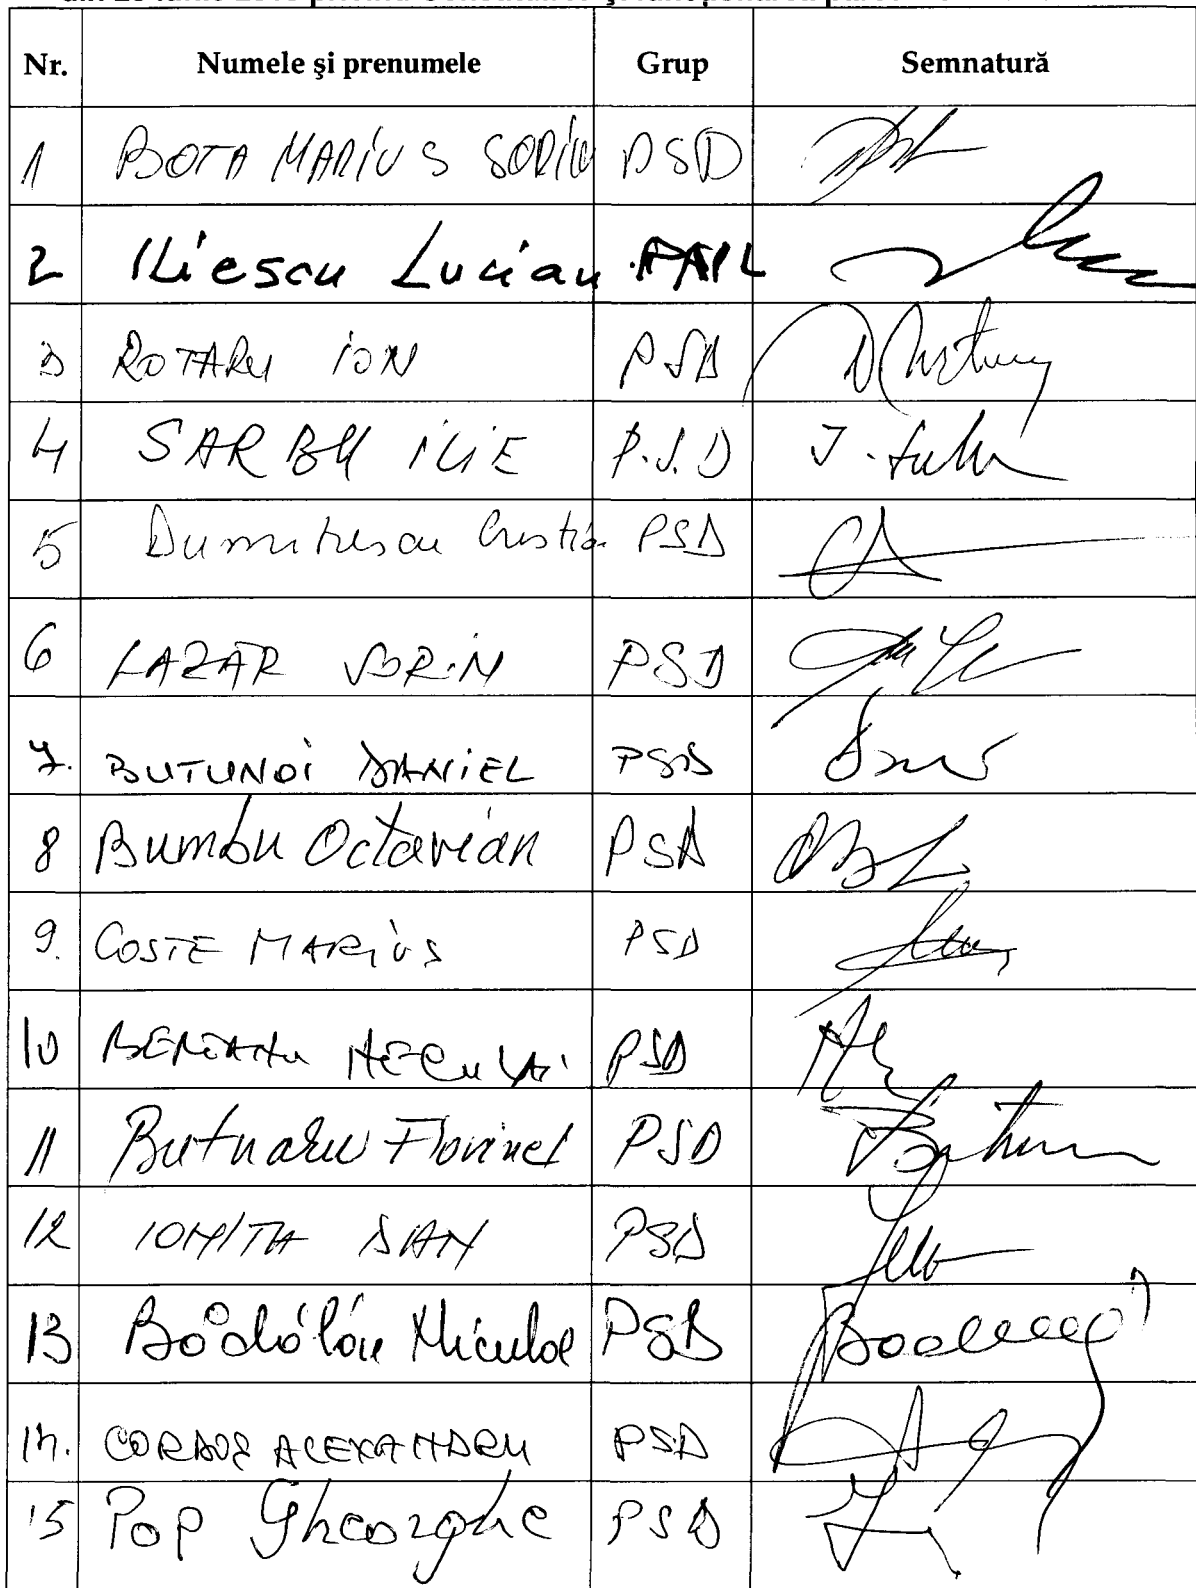 Nr. Numele și prenumele Grup Semnatură
1 BOTA MARIUS SORIN PSD
2 Iliescu Lucian
3 ROTARU ION PSD
4 SARBU ILIE P.S.D
5 Dumitrescu Cristia PSD
6 LAZAR SORIN PSD
7. BUTUNOI DANIEL PSD
8 Bumbu Octavian PSD
9. COSTE MARIUS PSD
10 NECULAI PSD
11 Butnaru Florinel PSD
12 IONITA DAN PSD
13 PSD
14. CORDOS ALEXANDRU PSD
15 Pop Gheorghe PSD